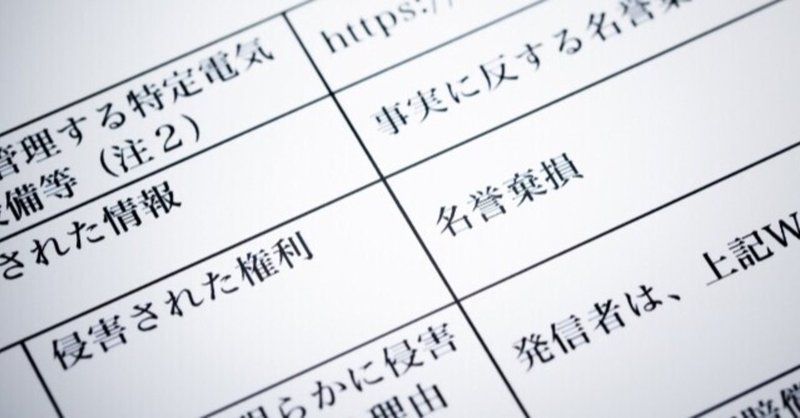 管理する特定電気
設備等（注２）
https://
された情報
事実に反する名誉棄
侵害された権利
名誉棄損
明らかに侵害
理由
発信者は、上記W
賠償